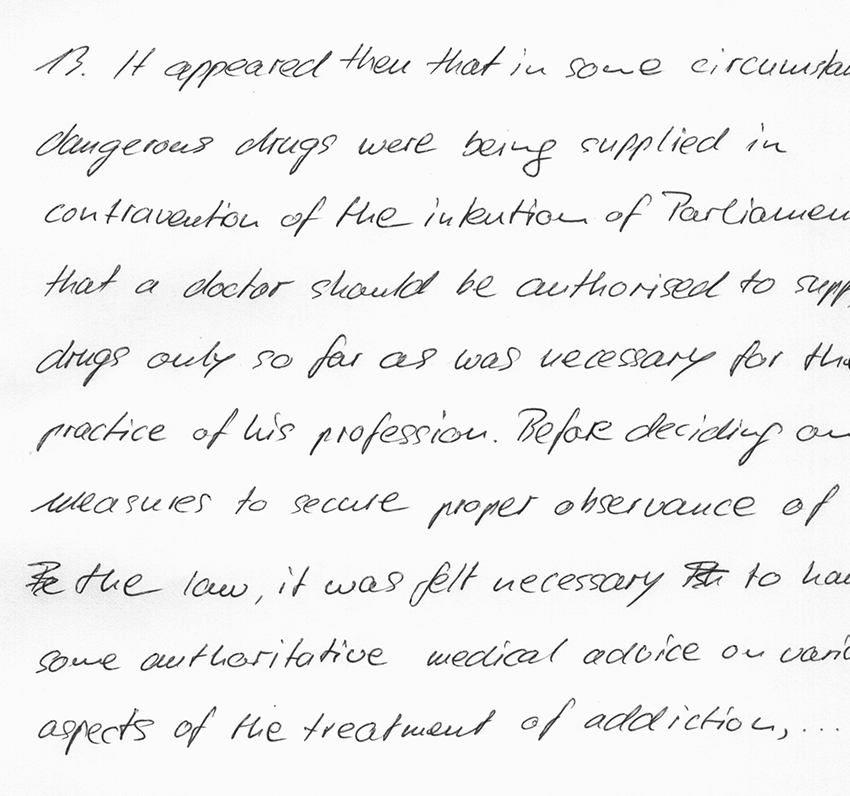 13. It appeared then that in some circumstan
dangerous drugs were being supplied in
contravention of the intention of Parliamen
that a doctor should be authorised to supp
drugs only so far as was necessary for the
practice of his profession. Before deciding on
measures to secure proper observance of
the law, it was felt necessary to hav
some authoritative medical advice on vario
aspects of the treatment of addiction,...